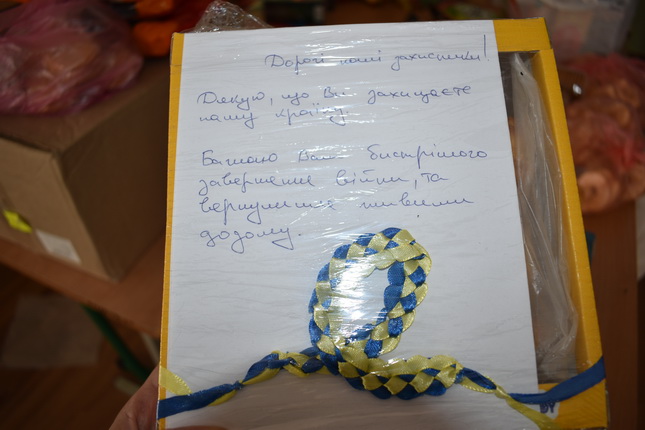 Дорогі наші захисники!
Дякую, що Ви захищаєте
нашу країну
Бажаю Вам бистрішого
завершення війни, та
вернутися живими
додому.